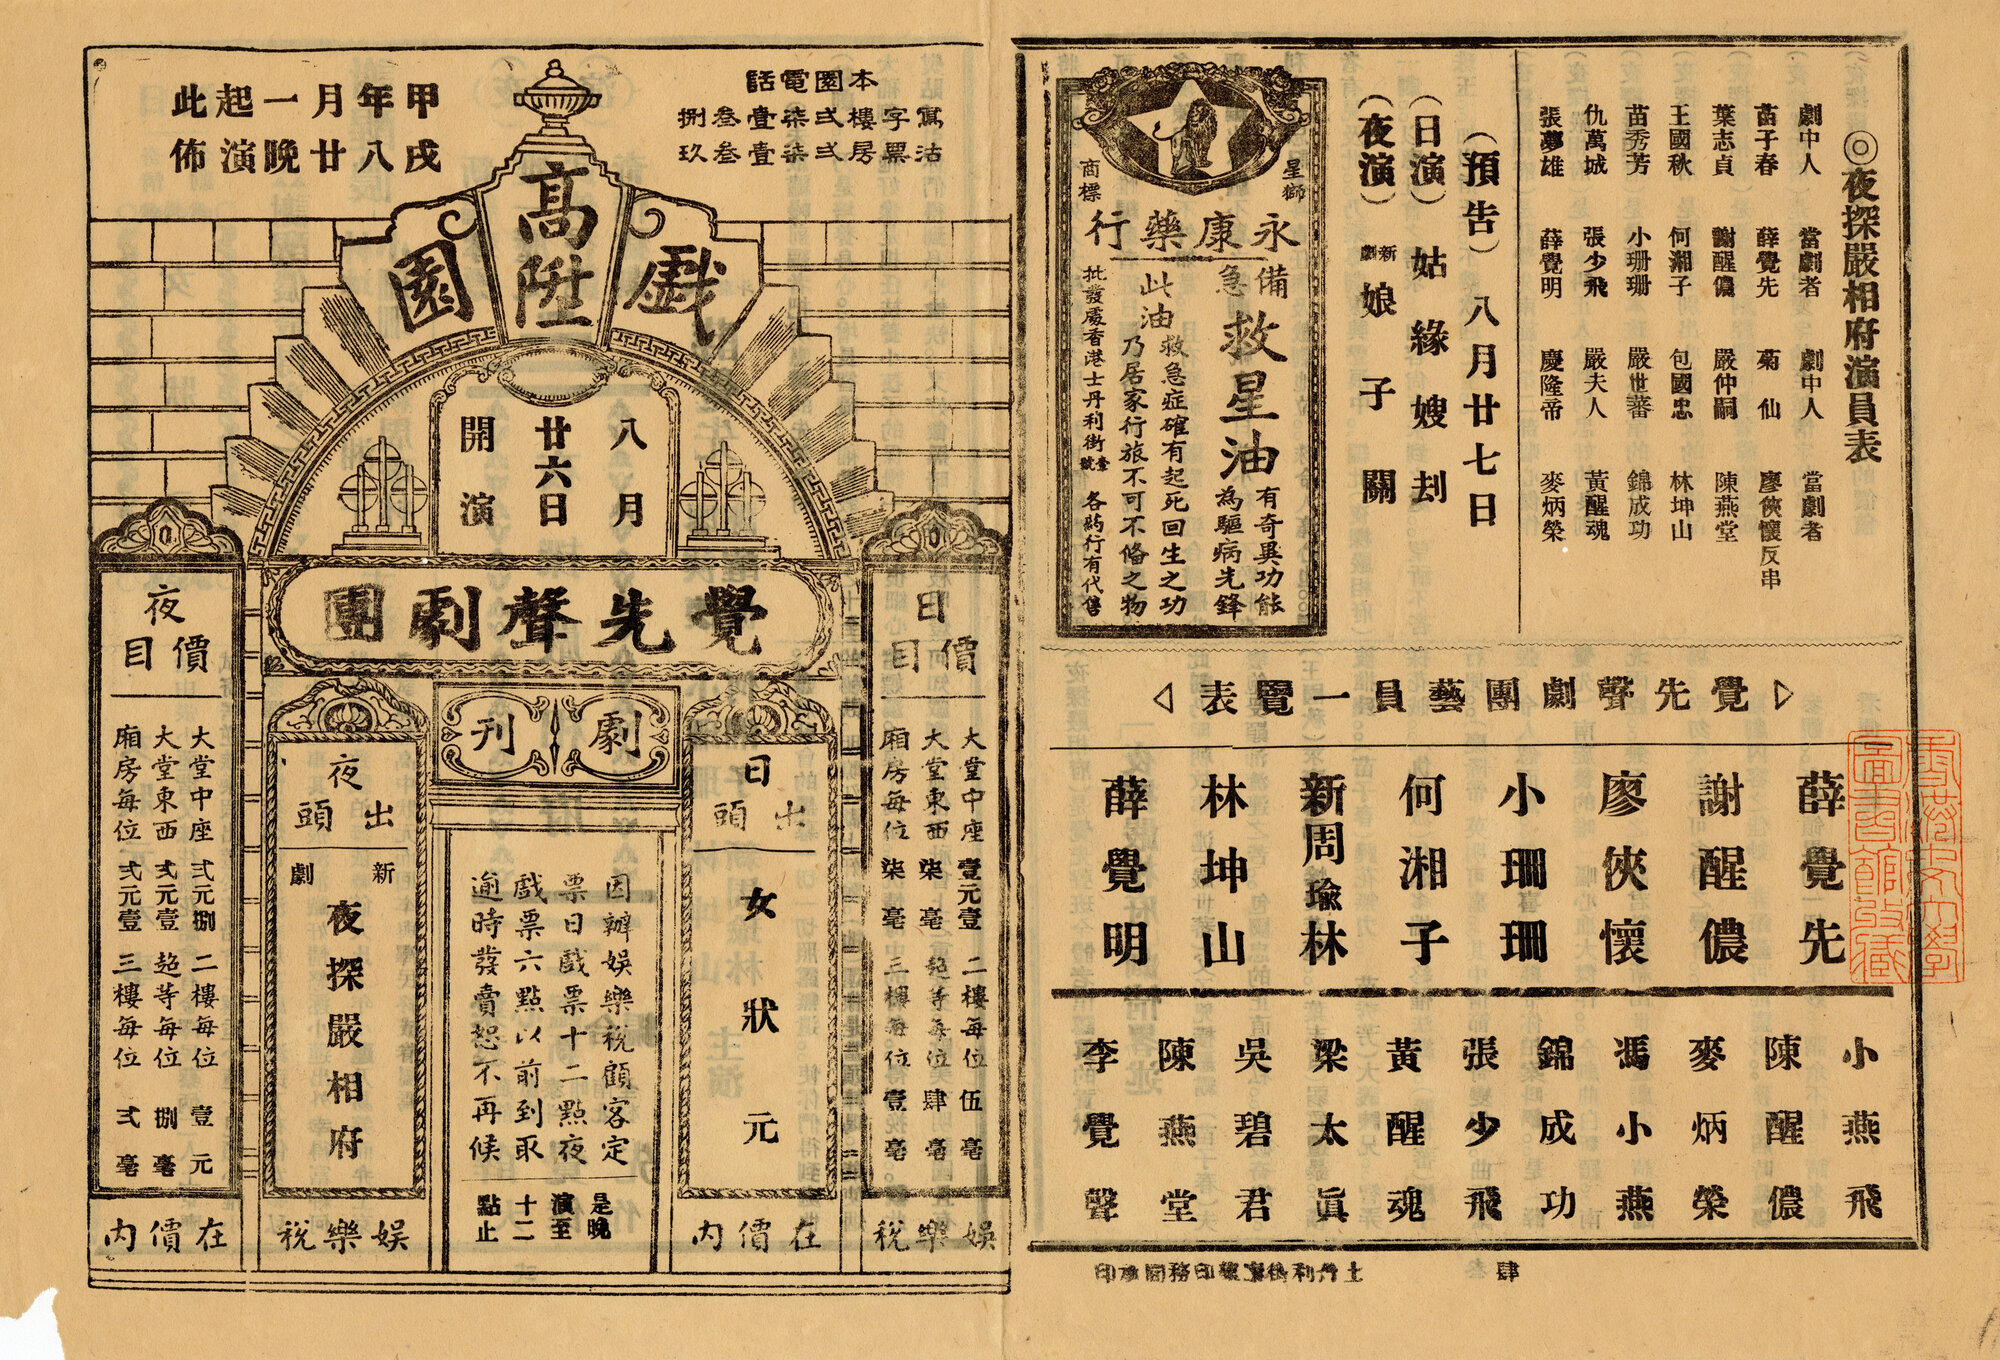 ◎夜探嚴相府演員表
劇中人 當劇者 劇中人 當劇者
苗子春 薛覺先 菊仙 廖俠懷反串
葉志貞 謝醒儂 嚴仲嗣 陳燕堂
王國秋 何湘子 包國忠 林坤山
苗秀芳 小珊珊 嚴世蕃 錦成功
仇萬城 張少飛 嚴夫人 黃醒魂
張夢雄 薛覺明 慶隆帝 麥炳榮
(預告)八月廿七日
(日演)姑緣嫂刦
(夜演)新劇娘子關
星獅
商標
永康藥行
備急
救星油
有奇異功能
為驅病先鋒
此油救急症確有起死回生之功
乃居家行旅不可不偹之物
批發處香港士丹利街壹號 各葯行有代售
▷覺先聲劇團藝員一覽表◁
薛覺先
謝醒儂
廖俠懷
小珊珊
何湘子
新周瑜林
林坤山
薛覺明
小燕飛
陳醒儂
麥炳榮
馮小燕
錦成功
張少飛
黃醒魂
梁太真
吳碧君
陳燕堂
李覺聲
肆
本園電話
寫字樓弍柒壹叁捌
沽票房弍柒壹叁玖
甲戌年八月廿一晚起演此佈
高陞
戲園
八月
廿六日
開演
覺先聲劇團
劇刊
日
價目
大堂中座 壹元壹 二樓每位 伍毫
大堂東西 柒毫 超等每位 肆毫
廂房每位 柒毫 三樓每位 壹毫
娛樂稅
日
出頭
女狀元
在價內
因辦娛樂稅顧客定
票日戲票十二點夜
戲票六點以前到取
逾時發賣恕不再候
是晚
演至
十二
點止
夜
出頭
新劇
夜探嚴相府
娛樂稅
夜
價目
大堂中座 弍元捌 二樓每位 壹元
大堂東西 弍元壹 超等每位 捌毫
廂房每位 弍元壹 三樓每位 弍毫
在價內